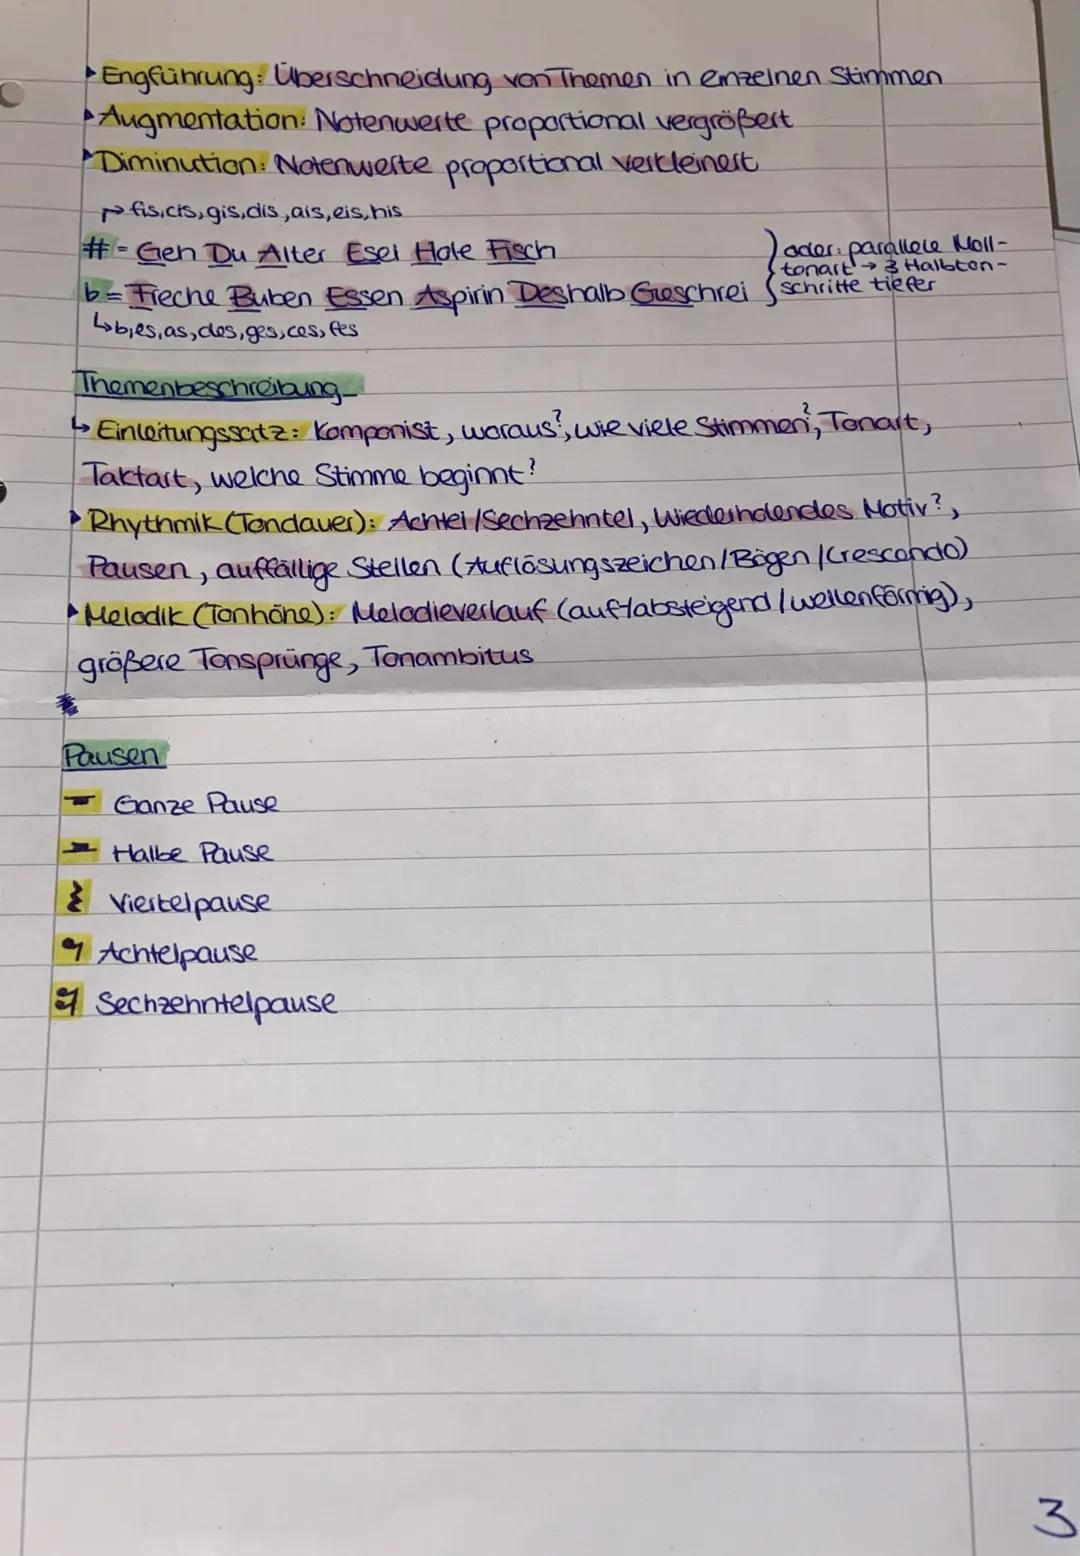 ▸ Engführung: Überschneidung von Themen in einzelnen Stimmen
▸ Augmentation: Notenwerte proportional vergrößert
▸ Diminution: Notenwerte proportional verkleinert
↱ fis, cis, gis, dis, ais, eis, his
# = Geh Du Alter Esel Hole Fisch
b = Freche Buben Essen Aspirin Deshalb Geschrei
} oder: parallele Moll-
tonart → 3 Halbton-
schritte tiefer
↳ b, es, as, des, ges, ces, fes
Themenbeschreibung
↳ Einleitungssatz: Komponist, woraus?, wie viele Stimmen?, Tonart,
Taktart, welche Stimme beginnt?
▸ Rhythmik (Tondauer): Achtel/Sechzehntel, Wiederholendes Motiv?,
Pausen, auffällige Stellen (Auflösungszeichen/Bögen/Crescendo)
▸ Melodik (Tonhöhe): Melodieverlauf (auf/absteigend/wellenförmig),
größere Tonsprünge, Tonambitus
Pausen
Ganze Pause
Halbe Pause
Viertelpause
Achtelpause
Sechzehntelpause
3